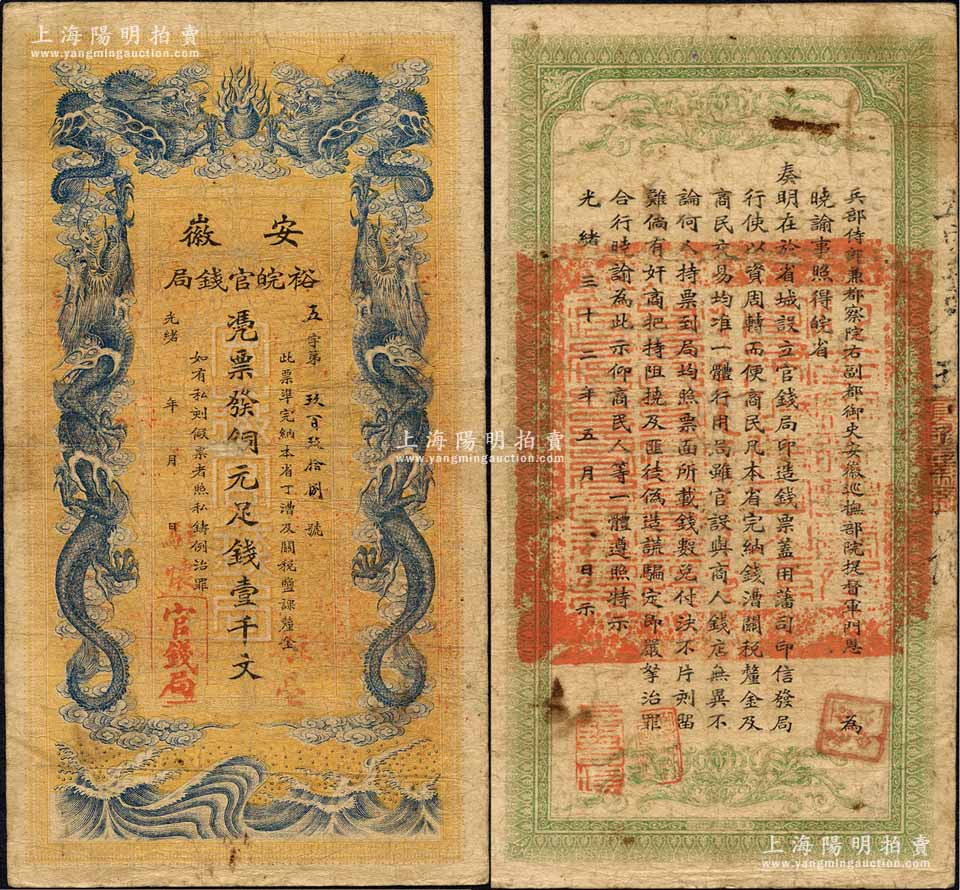 上海陽明拍賣
www.yangmingauction.com
安徽
裕皖官錢局
五字第玖百玖拾捌號
此票準完納本省丁漕及關稅鹽課釐金
憑票發銅元足錢壹千文
如有私刻假票者照私鑄例治罪
光緒 年 月 日
官錢局
兵部侍郎兼都察院右副都御史安徽巡撫部院提督軍門恩 為
曉諭事照得皖省
奏明在於省城設立官錢局印造錢票蓋用藩司印信發局
行使以資周轉而便商民凡本省完納錢漕關稅釐金及
商民交易均准一體行用局雖官設與商人錢店無異不
論何人持票到局均照票面所載錢數兌付決不片刻留
難倘有奸商把持阻撓及匪徒偽造誆騙定即嚴拏治罪
合行曉諭為此示仰商民人等一體遵照特示
光緒三十二年五月 日示
上海陽明拍賣
www.yangmingauction.com
上海陽明拍賣
www.yangmingauction.com